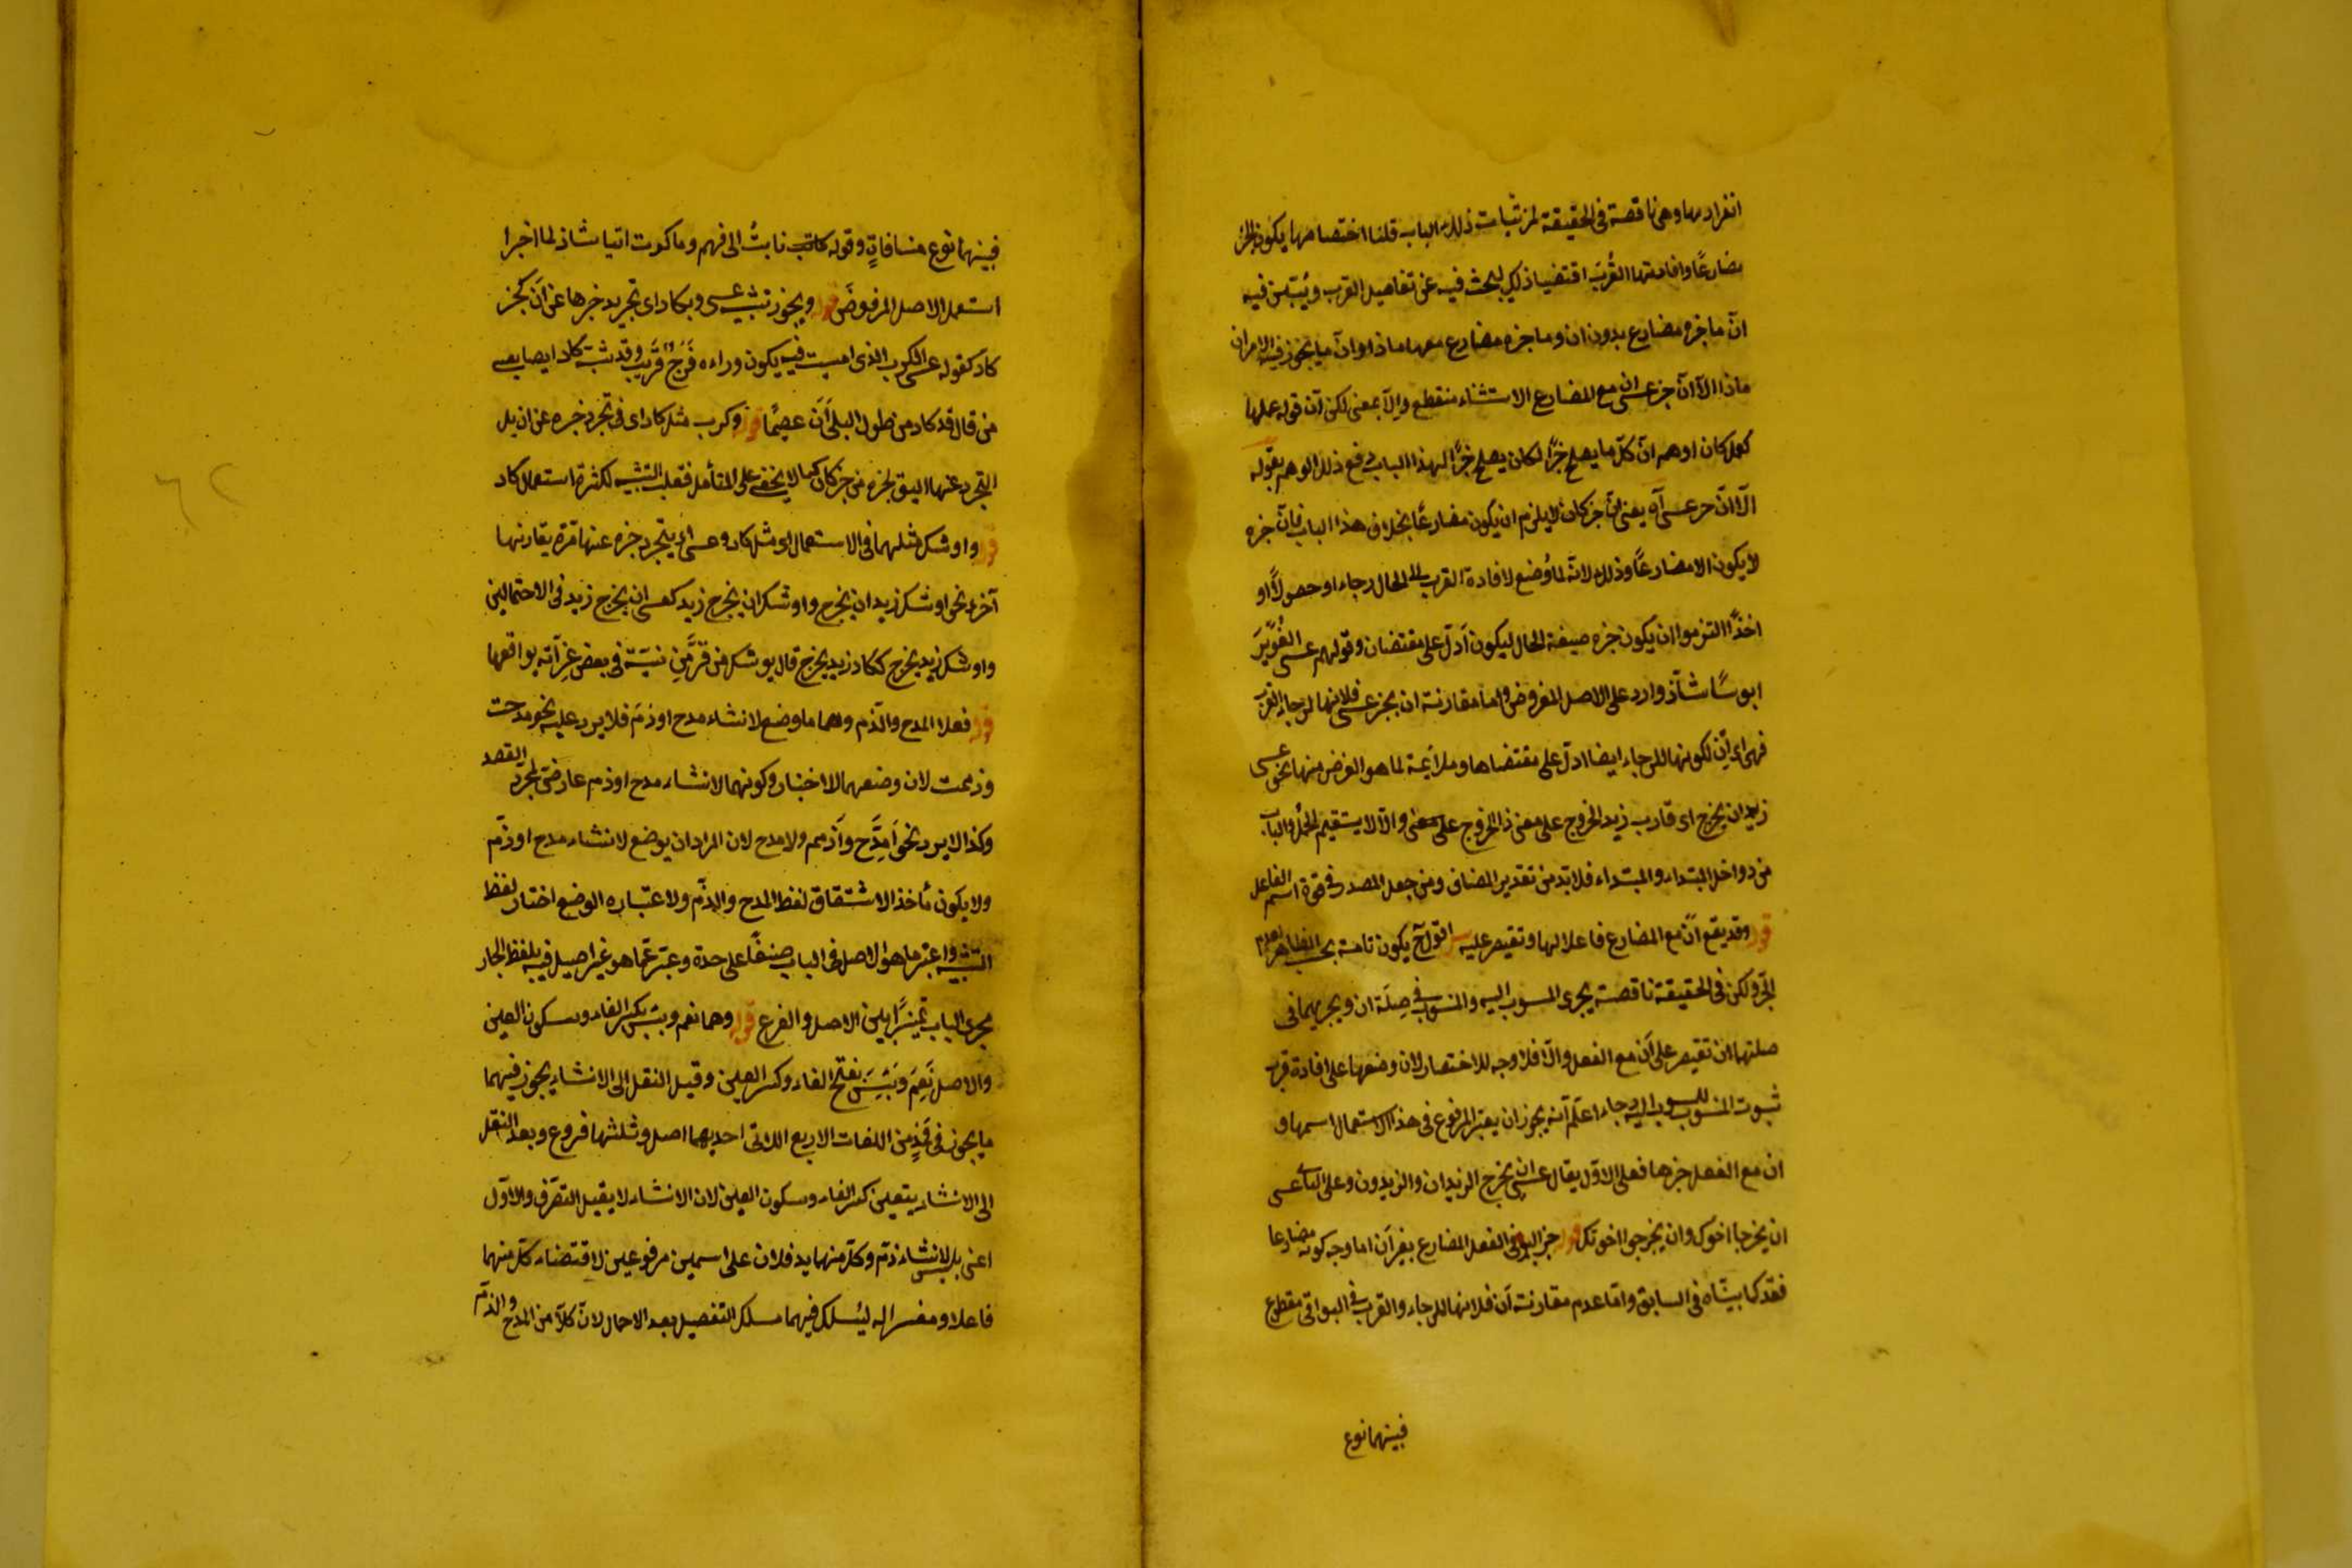 انفرادها وهى ناقصة فى الحقيقة ذلك الباب قلنا اختصامها يكون الخبر
مضارعًا وافادتها القُرب اقتضيا ذلك ليبحث فيه عن تفاصيل القرب ويُبيّن فيه
انّ ما خبره مضارع بدون ان وما خبره مضارع معها ماذا وانّ ما يجوز فيه الامران
ماذا الّا انّ خبر عسى ان مع المضارع الاستثناء منقطع والّا بمعنى لكن انّ قوله عملها
كعمل كان اوهم انّ كلّ ما يصلح خبرًا لكان يصلح خبرًا لهذا الباب دفع ذلك الوهم بقوله
الّا انّ خبر عسى آه يعنى انّ خبر كان لا يلزم ان يكون مضارعًا بخلاف هذا الباب فانّ خبره
لا يكون الا مضارعًا وذلك لانّه لما وُضع لافادة القرب الى الحال رجاء او حصولًا او
اخذًا التزموا ان يكون خبره صيغة الحال ليكون ادلّ على مقتضاه وقولهم عسى الغُوَيْرَ
ابوسًا شاذّ وارد على الاصل المرفوض واما مقارنة ان بخبر عسى فلانها لرجاء القرب
فهى اى ان لكونها للرجاء ايضا ادلّ على مقتضاها وملائمة لما هو الغرض منها نحو عسى
زيد ان يخرج اى قارب زيد الخروج على معنى ذا الخروج على معنى والّا لا يستقيم الحمل والباب
من دواخل المبتداء والمبتداء فلابدّ من تقدير المضاف ومن جعل المصدر فى قوة اسم الفاعل
قوله وقد يقع انْ مع المضارع فاعلا لها وتقتصر عليه اقول ح يكون تامة بحسب الظاهر لعدم
الخبر ولكن فى الحقيقة ناقصة يجرى المنسوب اليه والمنسوب فى صِلَة ان ويجريهما فى
صلتها ان تقتصر على أن مع الفعل والّا فلا وجه للاختصار لان وضعها على افادة قرب
ثبوت المنسوب للمنسوب اليه رجاء اعلم انّه يجوز ان يعتبر المرفوع فى هذا الاستعمال اسمها و
ان مع الفعل خبرها فعلى الاوّل يقال عسى ان يخرج الزيدان والزيدون وعلى الثانى عسى
ان يخرجا اخوك وان يخرجوا اخوتك قوله خبر البواقى الفعل المضارع بغير أن اما وجه كونه مضارعا
فقد كما بيّناه فى السابق وامّا عدم مقارنة أن فلانها للرجاء والقرب فى البواقى مقطوع
فبينهما نوع
فبينهما نوع منافاةٍ وقوله فابتُ الى فهم وما كدت اتيا شاذ لما اجرا
استعمل الاصل المرفوض قوله ويجوز تشبيه عسى وبكاد اى تجريد خبرها عن أن كخبر
كاد كقوله عسى الكرب الذى امسيت فيه يكون وراءه فَرَجٌ قريب وقد شبّه كاد ايضا بعسى
من قال قد كاد من طول البلى أن عصمًا قوله وكرب مثل كاد اى فى تجرد خبره عن ان بل
التجرد عنها اليق بخبره من خبر كان كما لا يخفى على المتأمل فقلب التشبيه لكثرة استعمال كاد
قوله واوشك مثلهما فى الاستعمال اى مثل كاد وعسى اى يتجرد خبره عنها مرّة يقارنها
آخرى نحو اوشك زيد ان يخرج واوشك ان يخرج زيد كعسى ان يخرج زيد فى الاحتمالين
واوشك زيد يخرج ككاد زيد يخرج قال يوشك من فرّ من منيّته فى بعض غِرّاته يواقعها
قوله فعلا المدح والذّم وهما ما وضع لانشاء مدح او ذمّ فلا يرد عليه نحو مدحت
وذممت لان وضعهما للاخبار وكونهما لانشاء مدح او ذم عارضىّ لمجرّد القصد
وكذا لا يرد نحو اَمدَح واَذمم ولا مدح لان المراد ان يوضع لانشاء مدح او ذمّ
ولا يكون مأخذ الاشتقاق لفظ المدح والذّم ولاعتباره الوضع اختار لفظ
التثنية واعتبر ما هو الاصل فى الباب صنفًا على حدة وعبّر عمّا هو غير اصيل فيه بلفظ الجار
مجرى الباب تميّزًا بين الاصل والفرع قوله وهما نعم وبئس بكسر الفاء وسكون العين
والاصل نَعِمَ وبَئِسَ بفتح الفاء وكسر العين وقيل النقل الى الانشاء يجوز فيهما
ما يجوز فى فَخِذٍ من اللغات الاربع اللاتى احديهما اصل وثلثها فروع وبعد النقل
الى الانشاء يتعين كسر الفاء وسكون العين لان الانشاء لا يقبل التصرّف والاوّل
اعنى بئس لانشاء ذمّ وكلّ منهما يدخلان على اسمين مرفوعين لاقتضاء كلّ منهما
فاعلا ومفسرا له ليُسلك فيهما مسلك التفصيل بعد الاجمال لانّ كلًّا من المدح والذمّ
٦٢